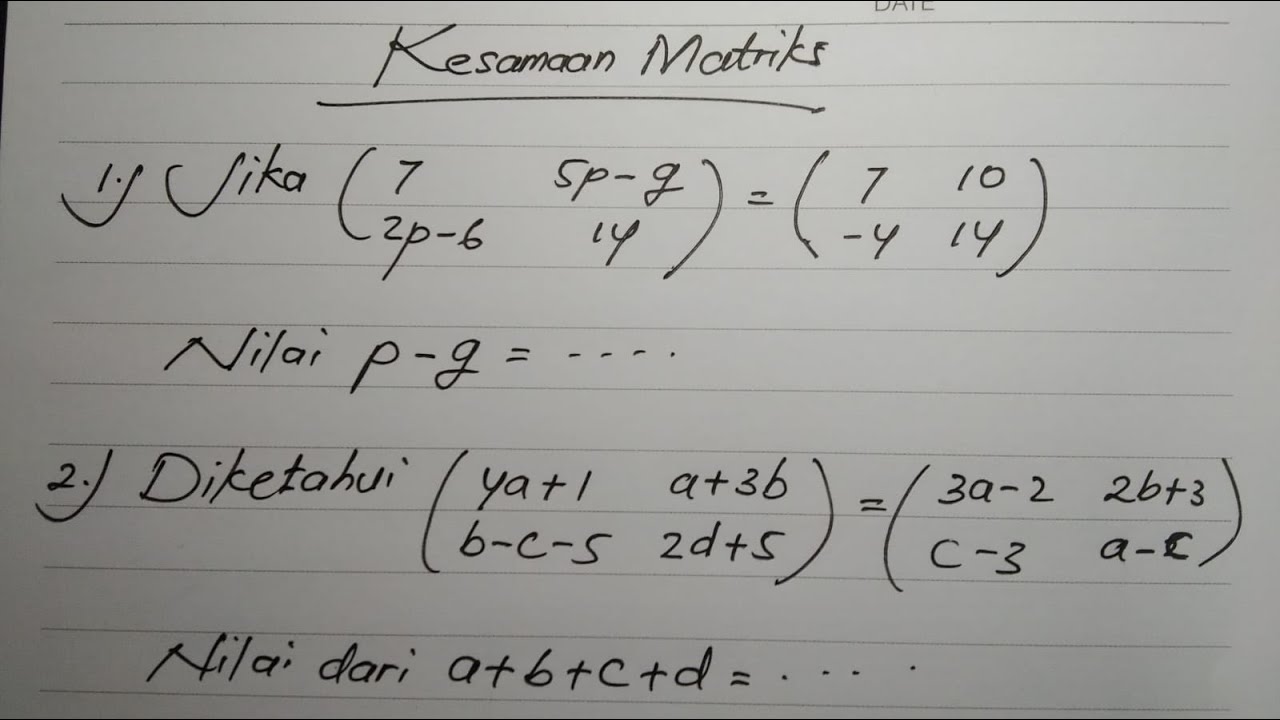 DATE
Kesamaan Matriks
1.) Jika (7 5p-q
2p-6 14) = (7 10
-4 14)
Nilai p-q = ....
2.) Diketahui (4a+1 a+3b
b-c-5 2d+5) = (3a-2 2b+3
c-3 a-c)
Nilai dari a+b+c+d = ....